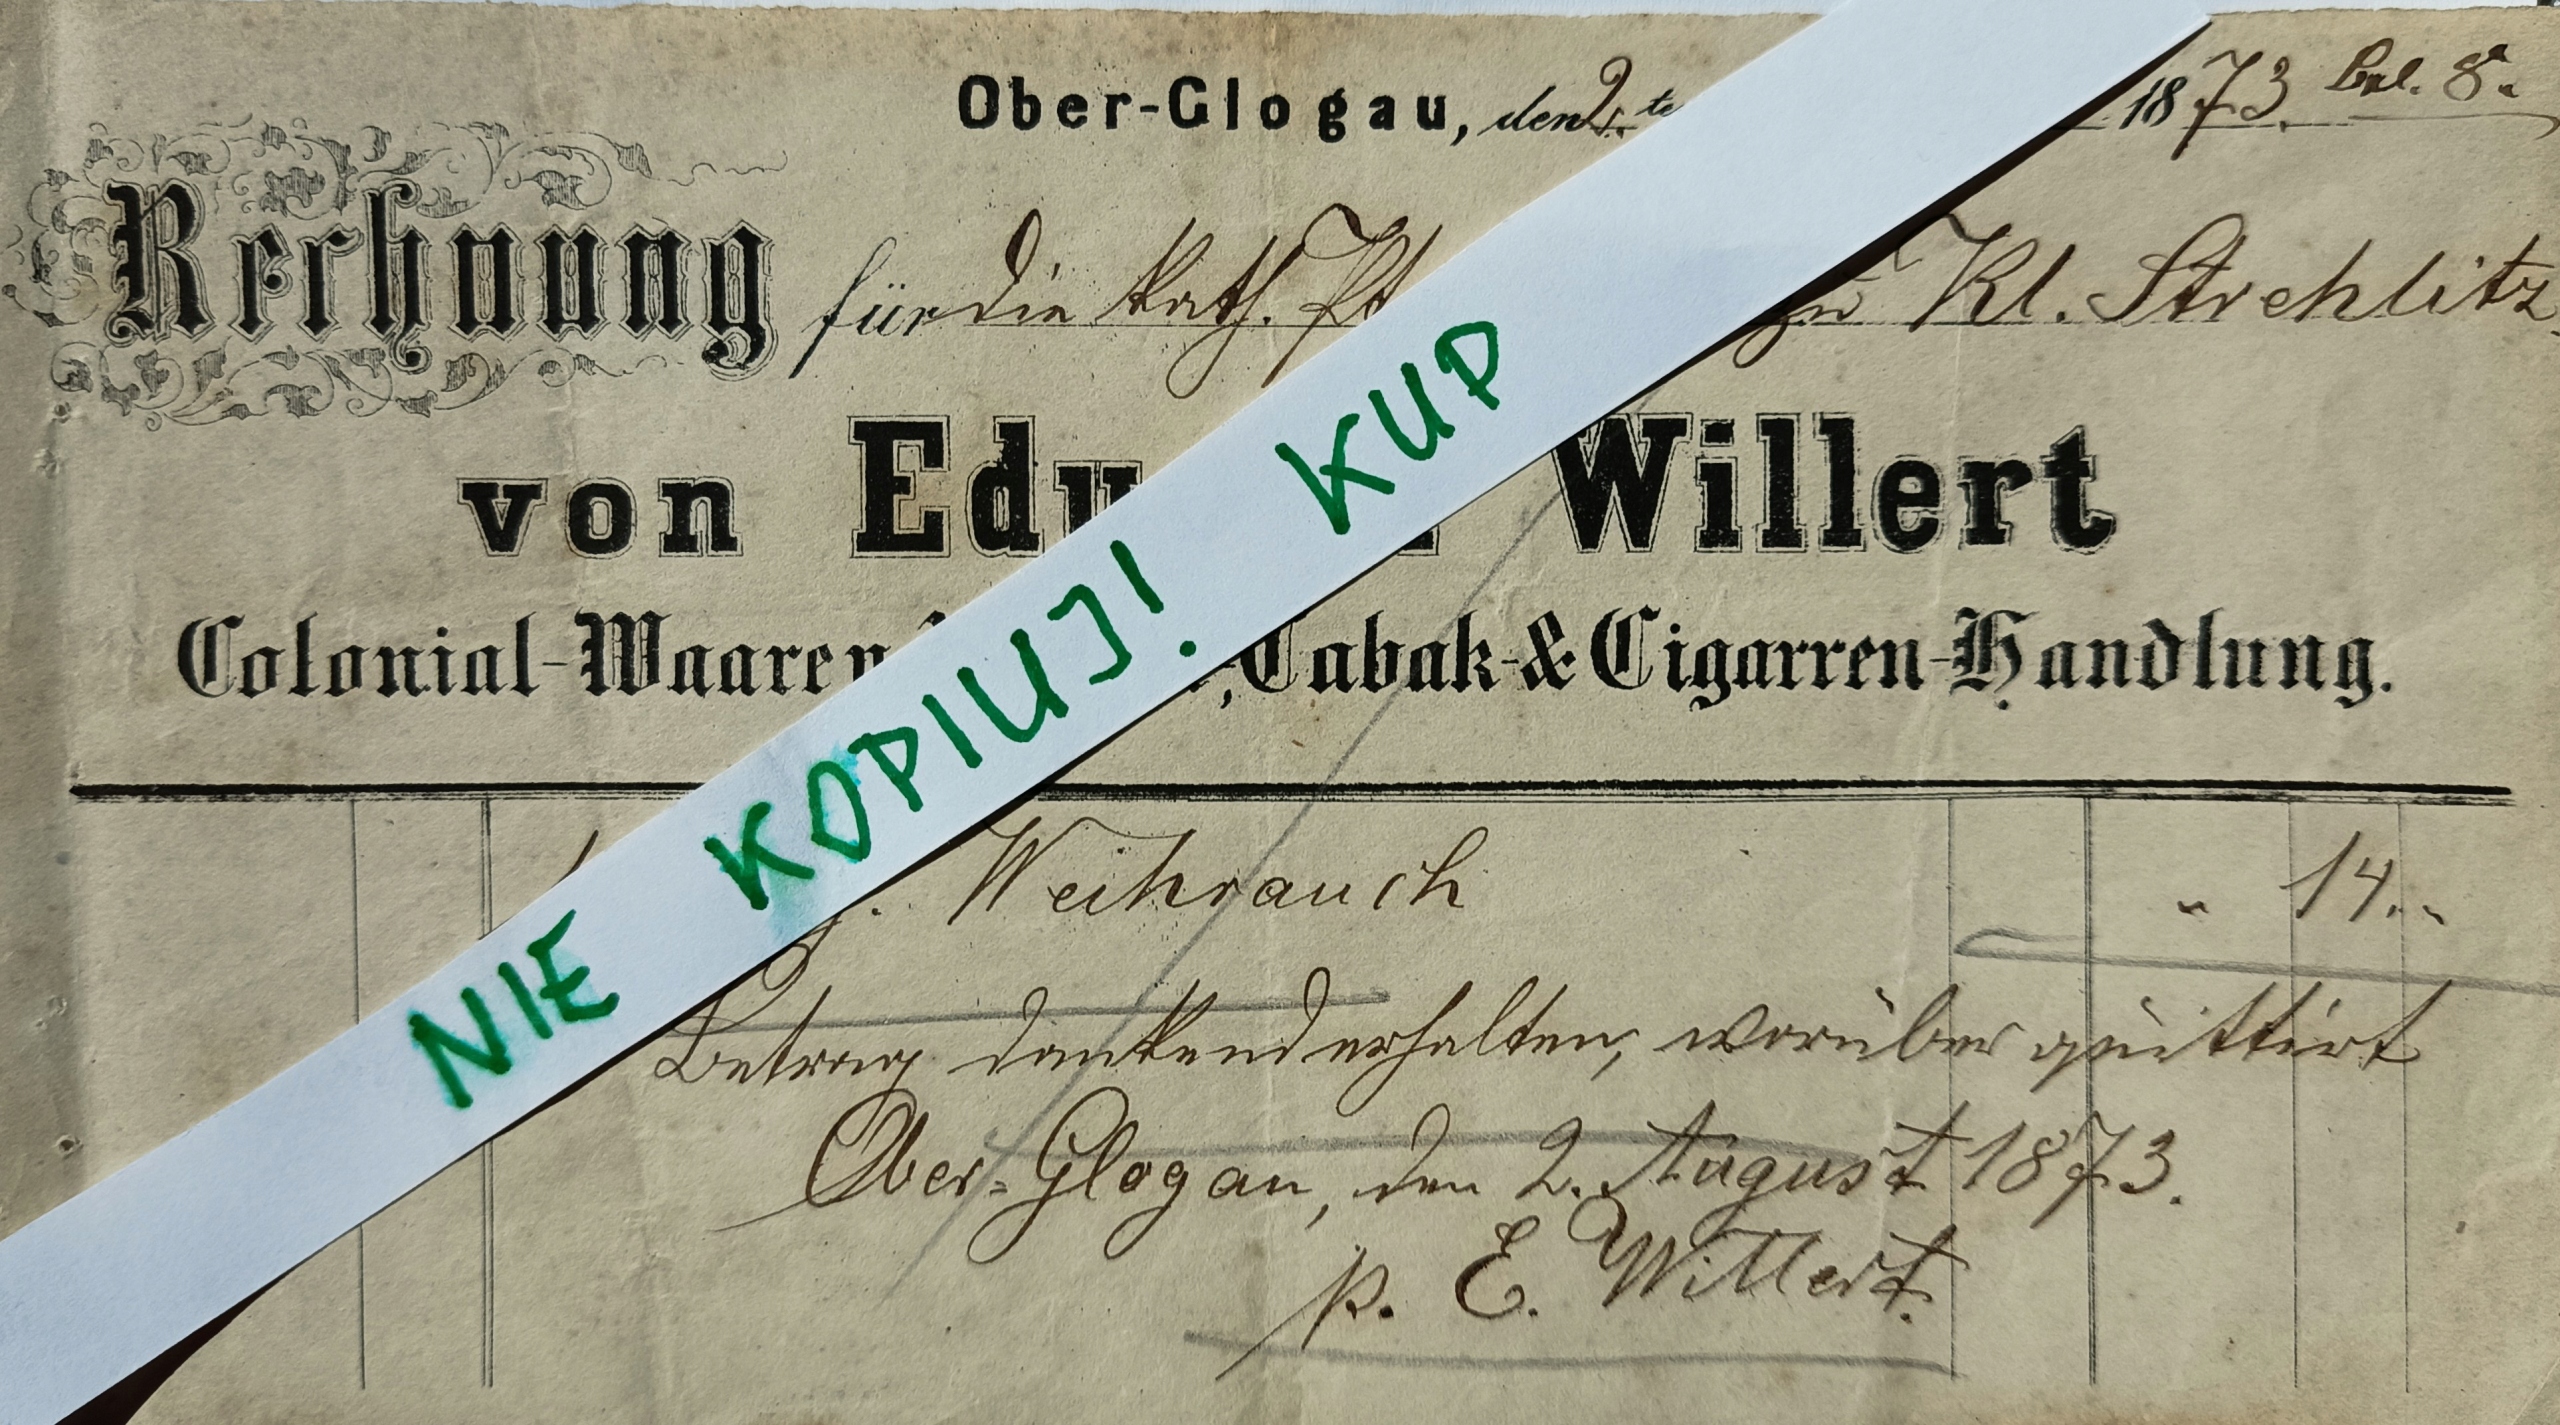 Ober-Glogau, den 2. te 1873. Bel. 8.
Rechnung für die kath. zu Kl. Strehlitz.
von Edu Willert
Colonial-Waaren Tabak- & Cigarren-Handlung.
Weihrauch " 14. "
Betrag dankend erhalten, worüber quittirt
Ober-Glogau, den 2. August 1873.
p. E. Willert.
NIE KOPIUJ! KUP